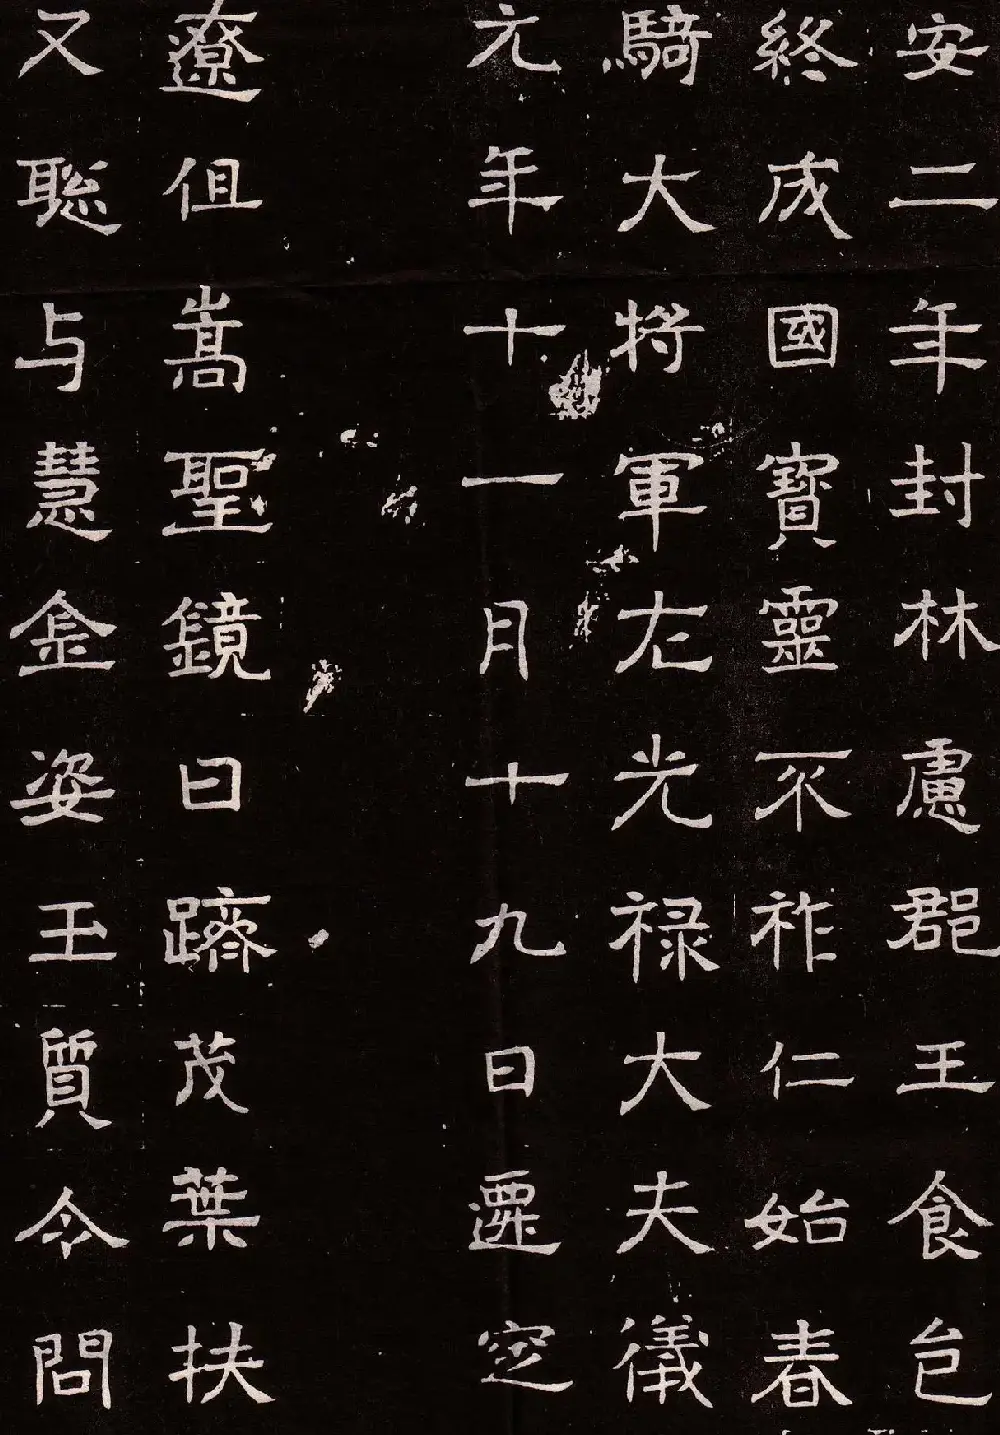 安二年封林慮郡王食邑
終成國寶靈不祚仁始春
騎大將軍左光禄大夫儀
元年十一月十九日遷窆
遼伹嵩聖鏡日躋茂葉扶
又聡与慧金姿玉質令問